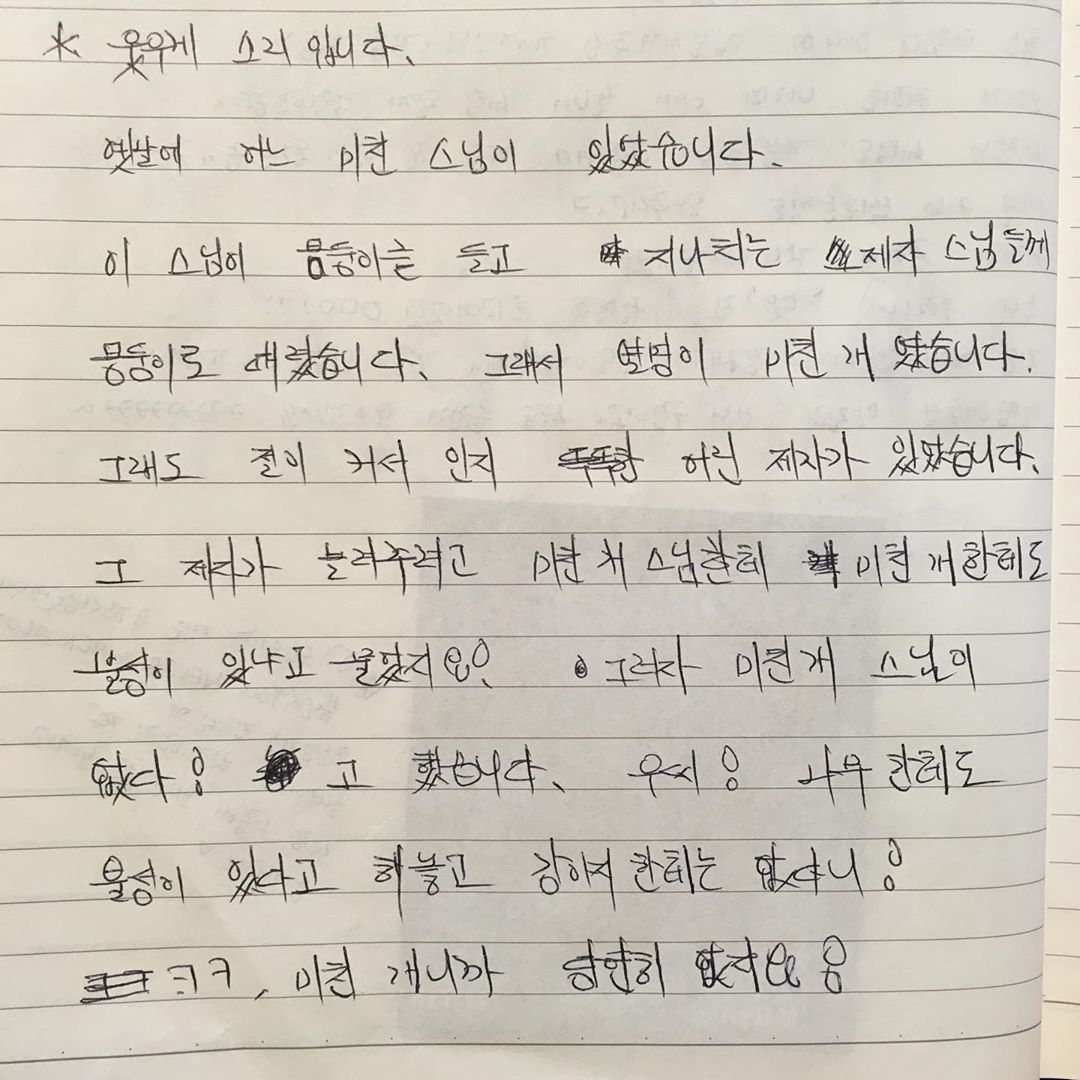 * 웃우게 소리 입니다.
옛날에 어느 미친 스님이 있었습니다.
이 스님이 몽둥이를 들고 지나치는 제자 스님들께
몽둥이로 때렸습니다. 그래서 별명이 미친 개 였습니다.
그래도 절이 커서 인지 똑똑한 어린 제자가 있었습니다.
그 제자가 놀려주려고 미친 개 스님한테 미친 개한테도
불성이 있냐고 물었지요? 그러자 미친개 스님이
없다! 고 했습니다. 우씨! 나무한테도
불성이 있다고 해놓고 강아지 한테는 없다니!
ㅋㅋ, 미친 개니까 당연히 없지요!